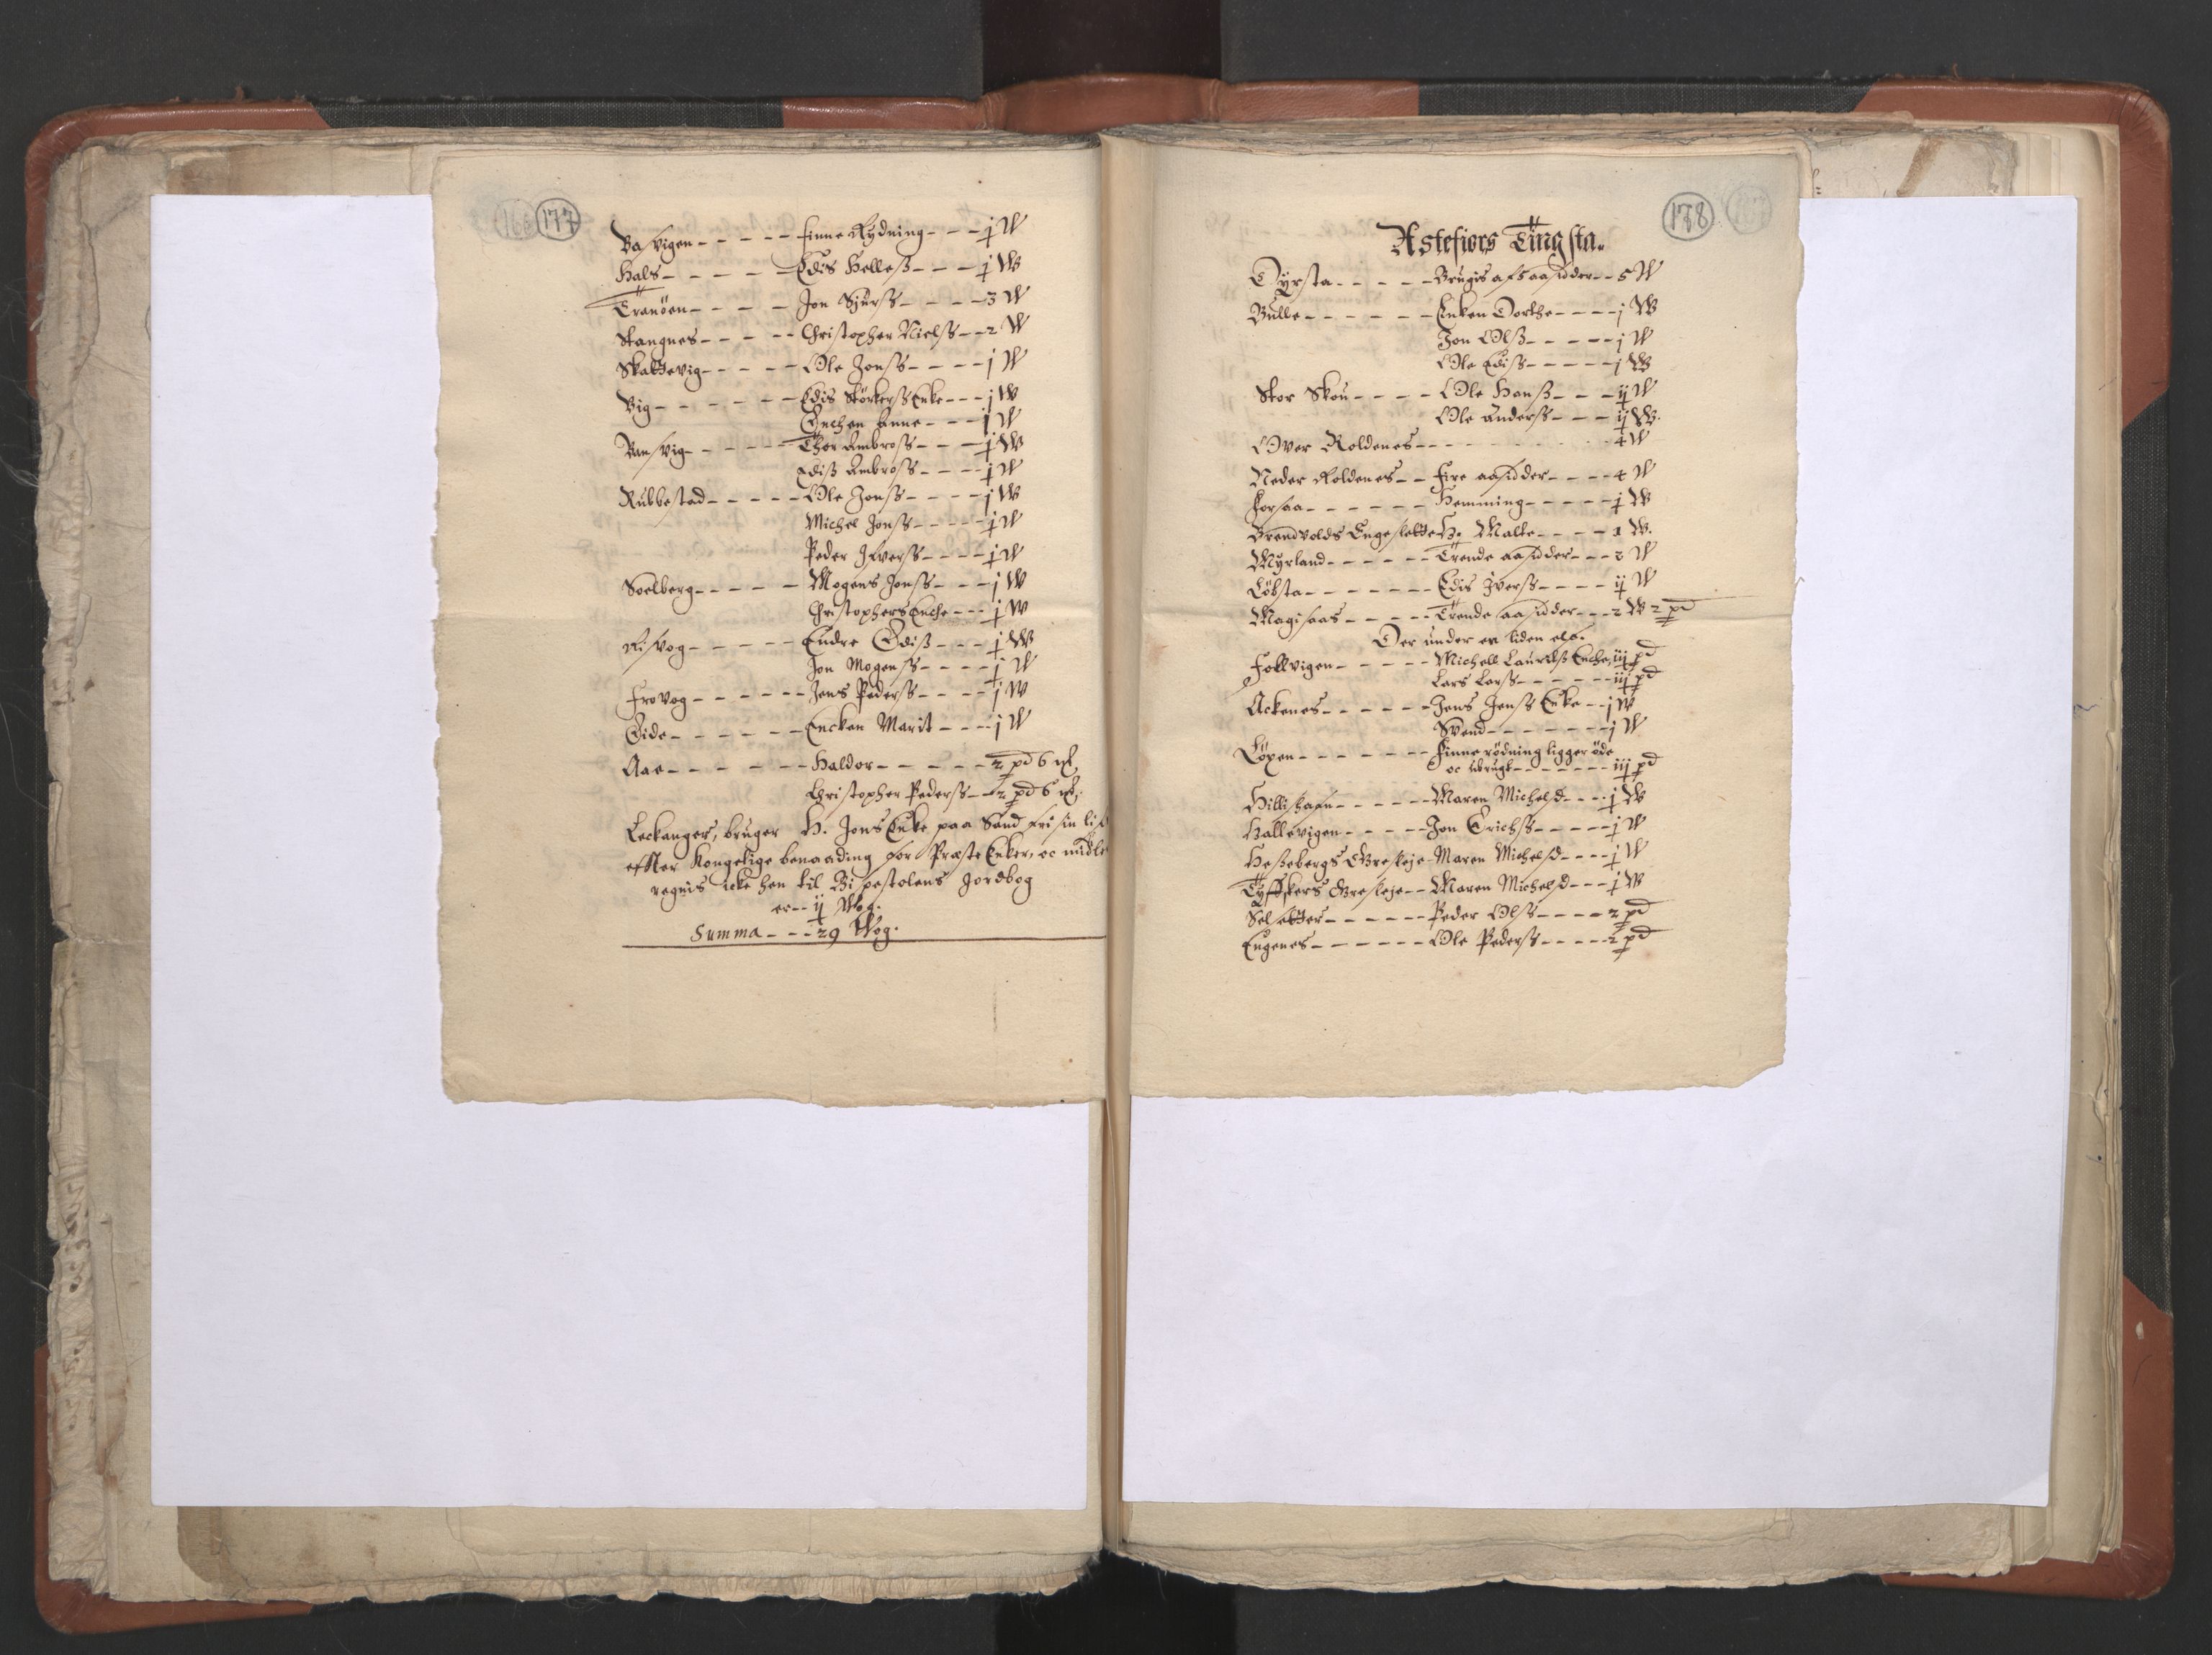 166 177
Basvigen - - - - - finne Rydning - - - j W
Hals - - - - - - Edis Helless - - - j W
Tranöen - - - - Jon Sjurss - - - - 3 W
Stangnes - - - - - Christopher Nielss - - 2 W
Skattevig - - - - - Ole Jonss - - - - j W
Vig - - - - - - - Edis Störkerss Enke - - - j W
Enchen Anne - - - j W
Ransvig - - - - - Thor Ambross - - - j W
Ediss Ambross - - - - j W
Rubbestad - - - - - Ole Jonss - - - - j W
Michel Jonss - - - - j W
Peder Ifverss - - - - j W
Soelberg - - - - - Mogens Jonss - - - j W
Christophers Enche - - - j W
Risvog - - - - - Endre Ediss - - - j W
Jon Mogenss - - - - j W
Frovog - - - - - - Jens Pederss - - - - j W
Eide - - - - - - - Encken Marit - - - - j W
Aae - - - - - - - Haldor - - - - - - 2 pd 6
Christopher Pederss - - 2 pd 6
Leckanger, bruger H. Jons Enke paa Sand fri sin lifs
effter Kongelige benaading for Præste Enker, oc midler
regnis icke hen til Bispestolens Jordbog
er - - ij Wog.
Summa - - - 29 Wog.
178 167
Astefiors Tingsta.
Dyrsta - - - - - - Brugis af 5 aasidder - - 5 W
Bulle - - - - - - - Enken Dorthe - - - - j W
Jon Olss - - - - - j W
Ole Ediss - - - - - j W
Stor Skou - - - - - Ole Hanss - - - ij W
Ole Anderss - - - ij W.
Over Roldenes - - - - - - - - - 4 W
Neder Roldenes - - Fire aasidder - - - - 4 W
Forsaa - - - - - - - Hemming - - - - - j W
Brendvolds Engeslette H. Mats - - - - 1 W.
Myrland - - - - - - Trende aasidder - - - 2 W
Löbsta - - - - - - - Edis Iverss - - - - ij W
Magisaas - - - - - Trende aasidder - - - 2 W 2 pd
Der under en liden
Follvigen - - - - - Michell Lauritss Enche, iij pd
Lars Larss - - - - - - iij pd
Ackenes - - - - - - Jens Jenss Enke - - j W
Svend - - - - - - - j W
Löxen - - - - - - - Finne rödning ligger öde
oc ubrugt - - - - - - iij pd
Hillishafn - - - - - - Maren Michelsd - - - j W
Hallevigen - - - - - Jon Erichss - - - - - j W
Hessebergs Øresleje - Maren Michelsd - - - - j W
Tyffskers Øresleje - - Maren Michelsd - - - j W
Selsetter - - - - - - Peder Olss - - - - 2 pd
Engenes - - - - - - - Ole Pederss - - - - - 2 pd